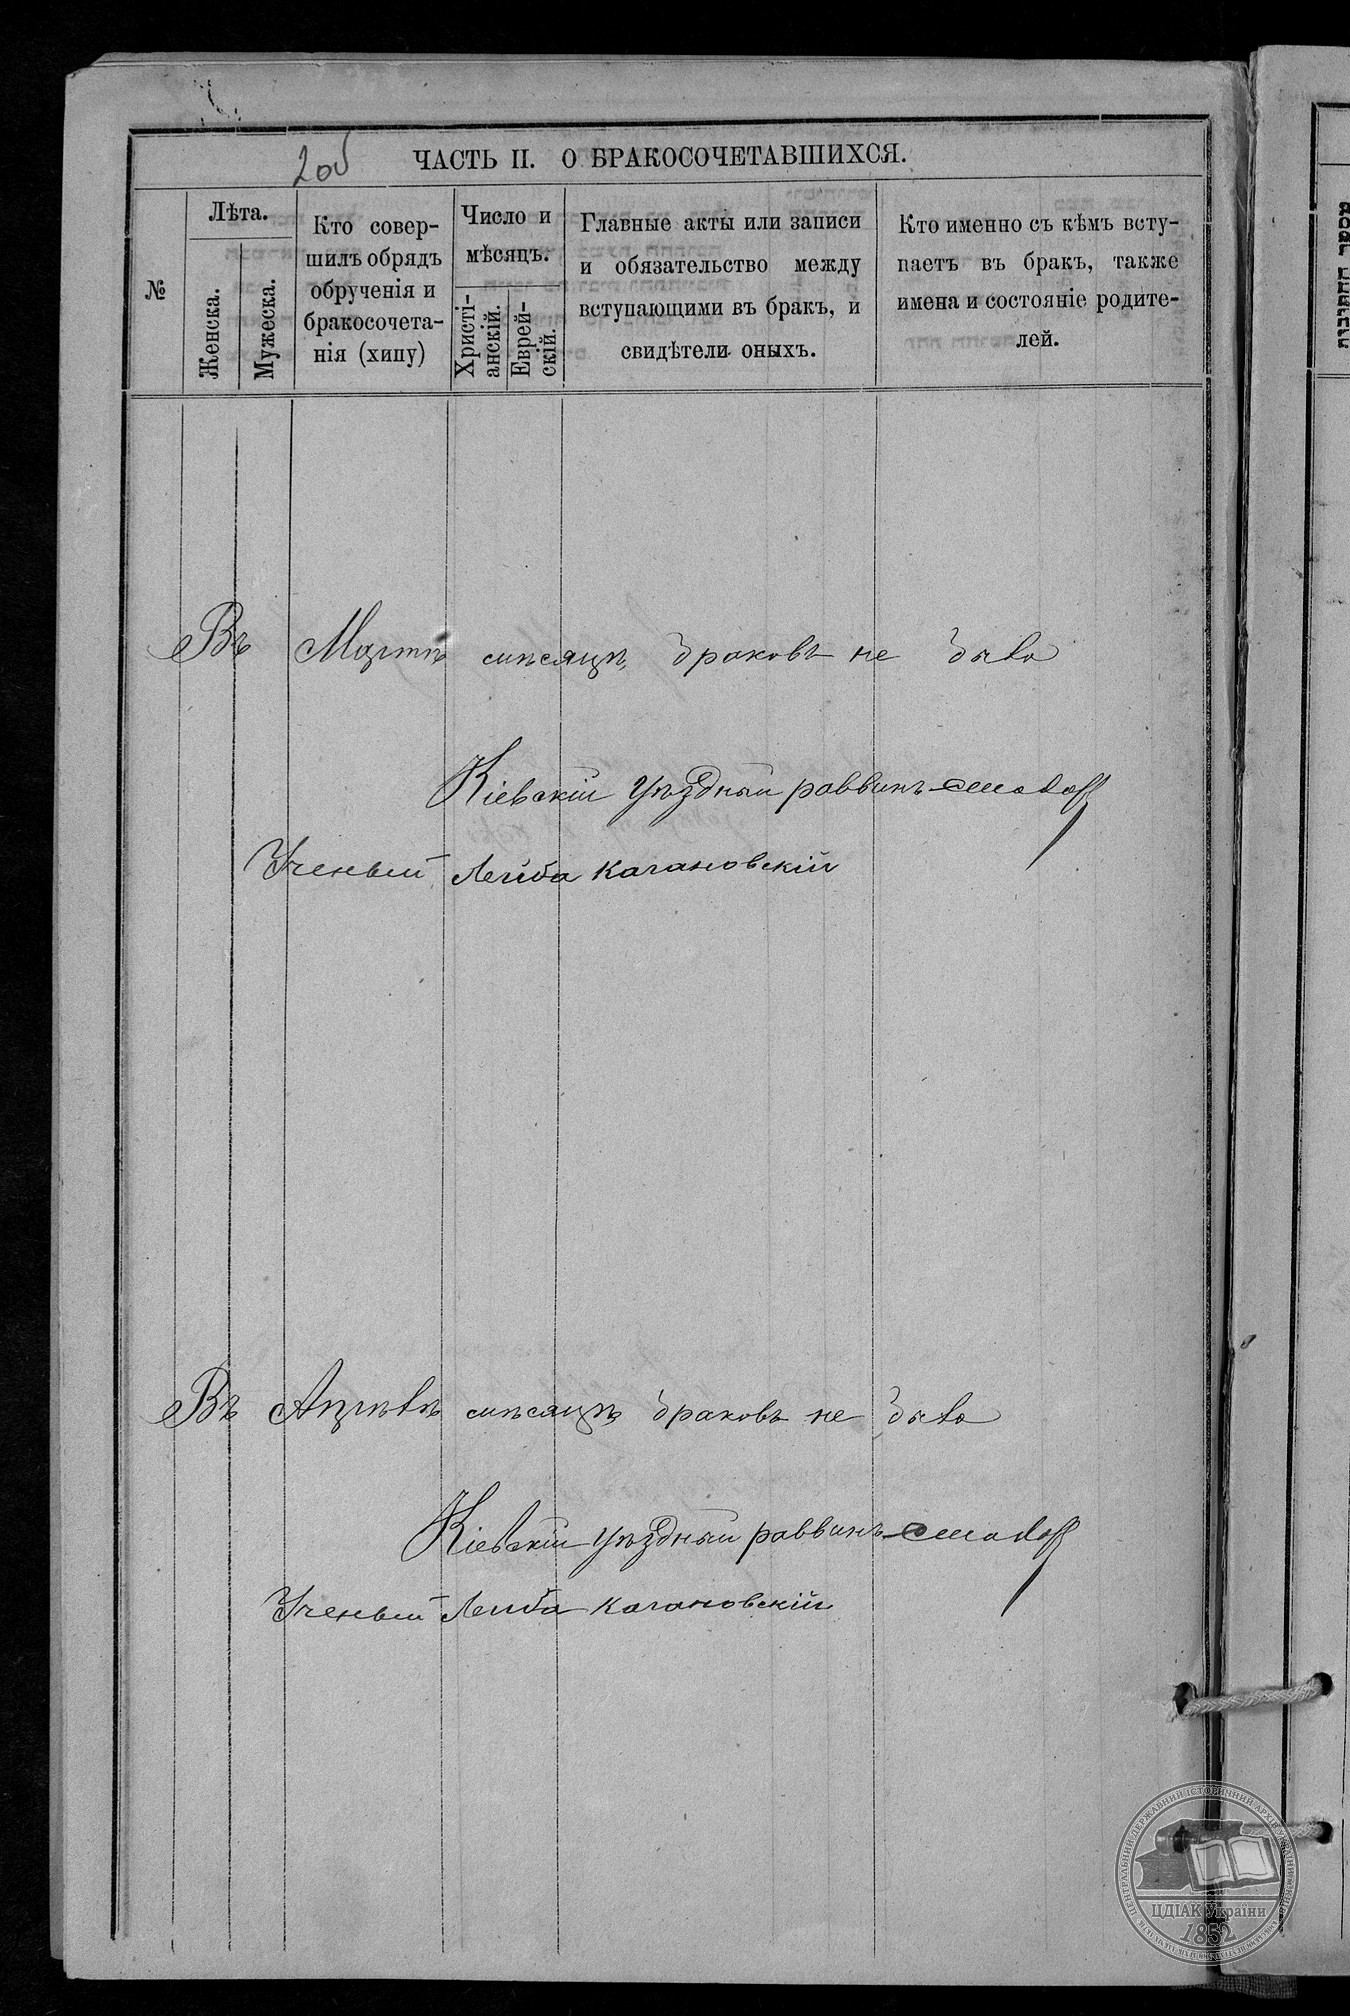 ЧАСТЬ II. О БРАКОСОЧЕТАВШИХСЯ.
№
Лѣта.
Женска.
Мужеска.
Кто совер-
шилъ обрядъ
обрученія и
бракосочета-
нія (хипу)
Число и
мѣсяцъ.
Христі-
анскій.
Еврей-
скій.
Главные акты или записи
и обязательство между
вступающими въ бракъ, и
свидѣтели оныхъ.
Кто именно съ кѣмъ всту-
паетъ въ бракъ, также
имена и состояніе родите-
лей.
Въ Мартѣ мѣсяцѣ браковъ не было
Кіевскій уѣздный раввинъ
Ученый Лейба Кагановскій
Въ Апрѣлѣ мѣсяцѣ браковъ не было
Кіевскій уѣздный раввинъ
Ученый Лейба Кагановскій
ЦДІАК України
1852